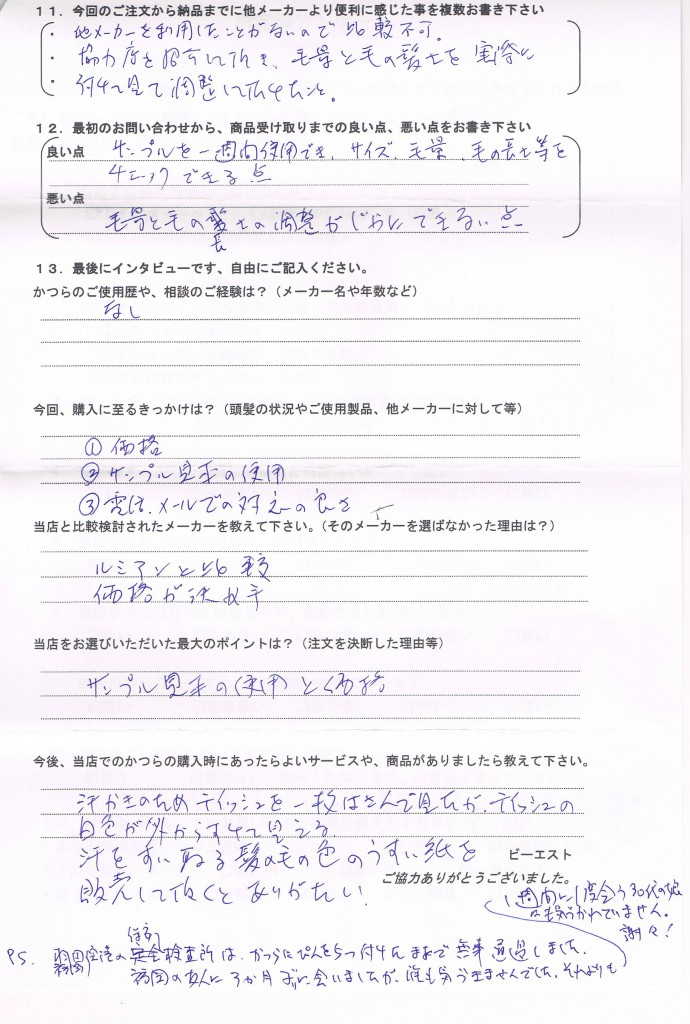 11．今回のご注文から納品までに他メーカーより便利に感じた事を複数お書き下さい
・他メーカーを利用したことがないので比較不可。
・協力店を紹介して頂き、毛量と毛の長さを実際に
・付けて見て調整して頂けたこと。
12．最初のお問い合わせから、商品受け取りまでの良い点、悪い点をお書き下さい
良い点 サンプルを一週間使用でき、サイズ、毛量、毛の長さ等を
チェックできる点
悪い点
毛量と毛の長さの調整がじかにできない点
13．最後にインタビューです、自由にご記入ください。
かつらのご使用歴や、相談のご経験は？（メーカー名や年数など）
なし
今回、購入に至るきっかけは？（頭髪の状況やご使用製品、他メーカーに対して等）
① 価格
② サンプル見本の使用
③ 電話、メールでの対応の良さ
当店と比較検討されたメーカーを教えて下さい。（そのメーカーを選ばなかった理由は？）
ルミアンと比較
価格が決め手
当店をお選びいただいた最大のポイントは？（注文を決断した理由等）
サンプル見本の使用と価格
今後、当店でのかつらの購入時にあったらよいサービスや、商品がありましたら教えて下さい。
汗かきのためティッシュを一枚はさんで見たが、ティッシュの
白色が外からすけて見える
汗をすい取る髪の毛の色のうすい紙を
販売して頂くとありがたい。
ビーエスト
ご協力ありがとうございました。
P.S. 羽田空港の保安検査所は、かつらにぴんを5つ付けたままで無事通過しました。
福岡の友人に3か月ぶりに会いましたが、誰も気づきませんでした。それよりも
1週間に1度会う30代の娘
にも気づかれていません。
謝々！